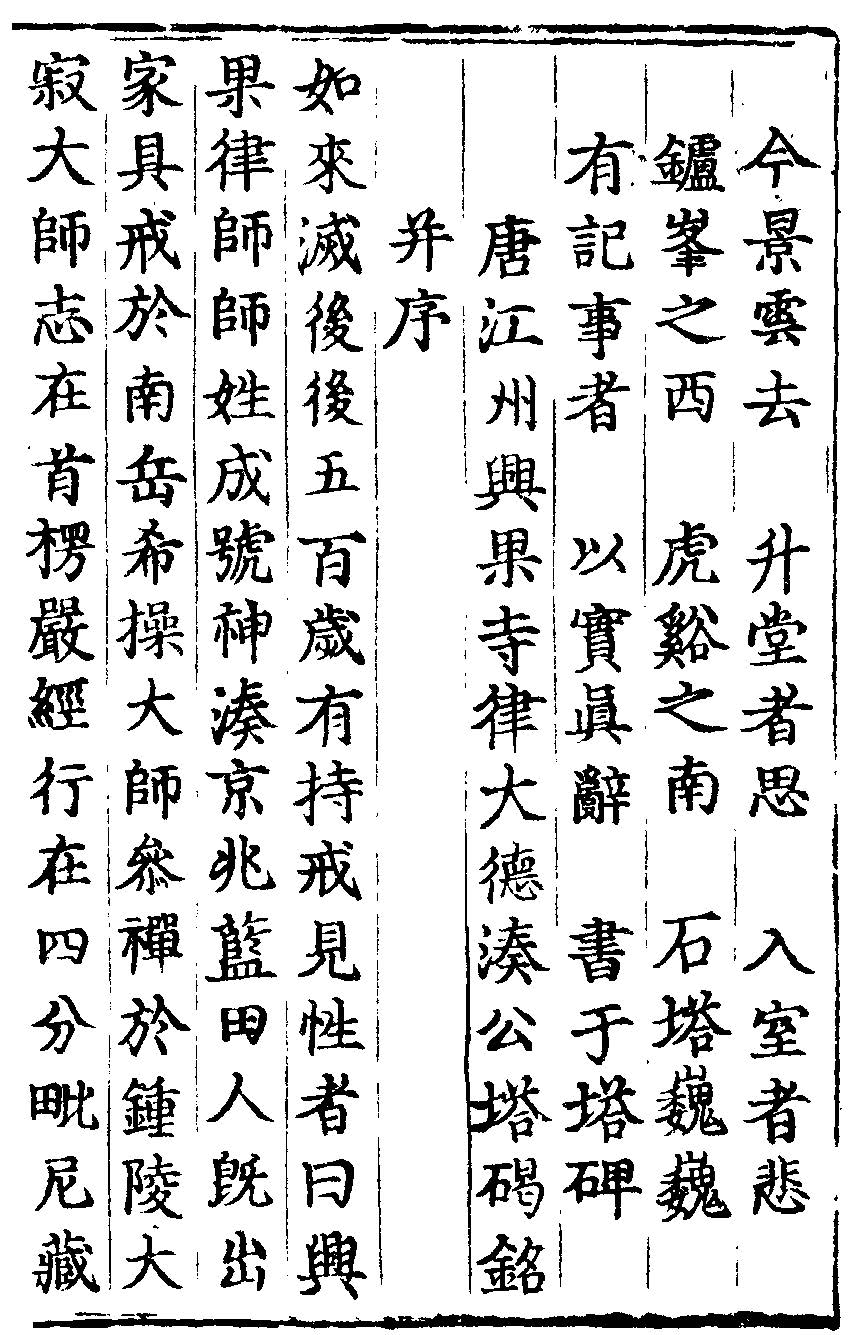 今景雲去　升堂者思　入室者悲
鑪峯之西　虎谿之南　石塔巍巍
有記事者　以實眞辭　書于塔碑
唐江州興果寺律大德湊公塔碣銘
并序
如來滅後後五百歲有持戒見性者曰興
果律師師姓成號神湊京兆藍田人旣出
家具戒於南岳希操大師叅禪於鍾陵大
寂大師志在首楞嚴經行在四分毗尼藏